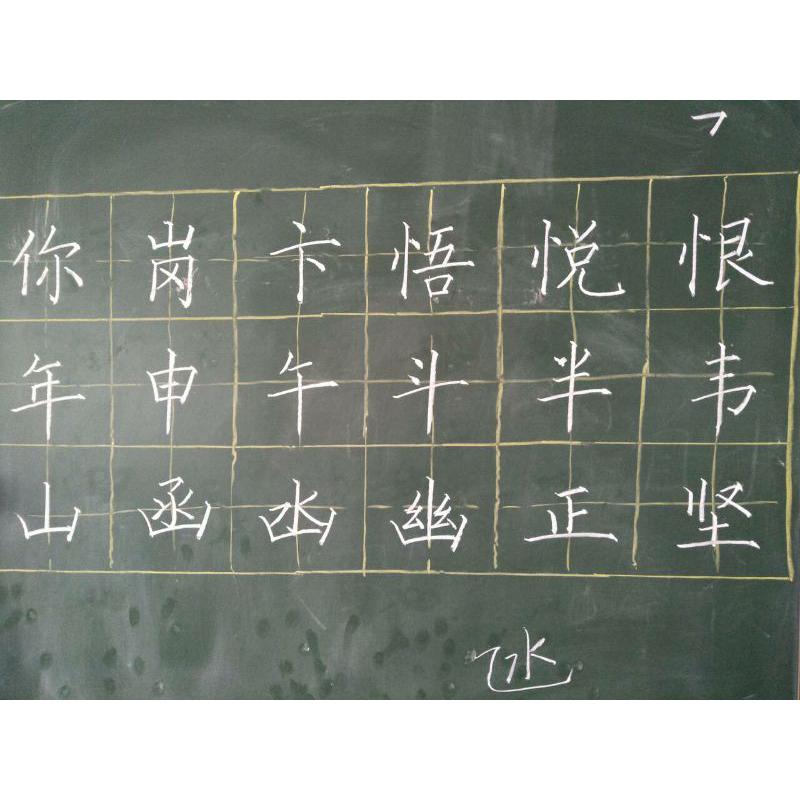 你岗卞悟悦恨
年申午斗半韦
山函凼幽正坚